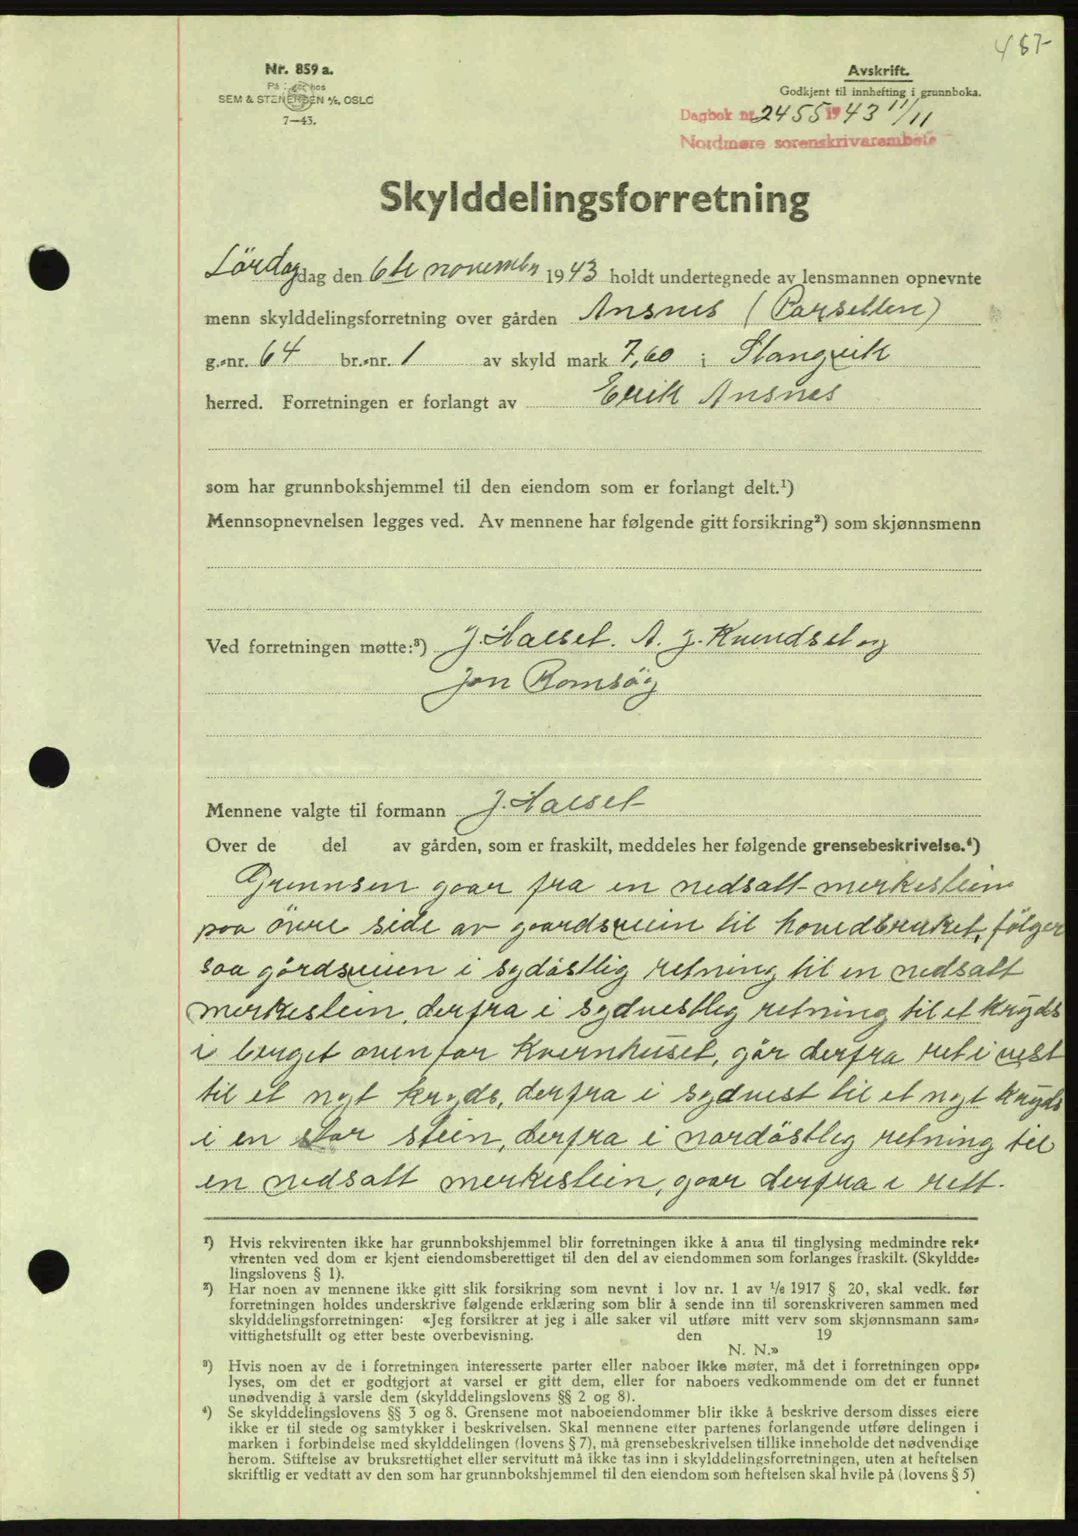 487-
Nr. 859 a.
På lager hos
SEM & STENERSEN A/S, OSLO
7—43.
Avskrift.
Godkjent til innhefting i grunnboka.
Dagbok nr. 2455 1943 11/11
Nordmøre sorenskrivarembete
Skylddelingsforretning
Lördag dag den 6te november 1943 holdt undertegnede av lensmannen opnevnte
menn skylddelingsforretning over gården Ansnes (Parsellen)
g.-nr. 64 br.-nr. 1 av skyld mark 7,60 i Stangvik
herred. Forretningen er forlangt av Erik Ansnes
som har grunnbokshjemmel til den eiendom som er forlangt delt.¹)
Mennsopnevnelsen legges ved. Av mennene har følgende gitt forsikring²) som skjønnsmenn
Ved forretningen møtte:³) J. Halset. A. J. Knudsel og
Jon Romsög
Mennene valgte til formann J. Halset
Over de del av gården, som er fraskilt, meddeles her følgende grensebeskrivelse.⁴)
Grennsen gaar fra en nedsatt merkestein
paa övre side av gaardsveien til hovedbruket, följer
saa gårdsveien i sydöstlig retning til en nedsatt
merkestein, derfra i sydvestlig retning til et kryds
i berget ovenfor Kvernhuset, går derfra ret i vest
til et nyt kryds, derfra i sydvest til et nyt kryds
i en stor stein, derfra i nordöstleg retning til
en nedsatt merkestein, gaar derfra i rett.
¹) Hvis rekvirenten ikke har grunnbokshjemmel blir forretningen ikke å anta til tinglysing medmindre rek-
virenten ved dom er kjent eiendomsberettiget til den del av eiendommen som forlanges fraskilt. (Skyldde-
lingslovens § 1).
²) Har noen av mennene ikke gitt slik forsikring som nevnt i lov nr. 1 av 1/6 1917 § 20, skal vedk. før
forretningen holdes underskrive følgende erklæring som blir å sende inn til sorenskriveren sammen med
skylddelingsforretningen: «Jeg forsikrer at jeg i alle saker vil utføre mitt verv som skjønnsmann sam-
vittighetsfullt og etter beste overbevisning. den 19
N. N.»
³) Hvis noen av de i forretningen interesserte parter eller naboer ikke møter, må det i forretningen opp-
lyses, om det er godtgjort at varsel er gitt dem, eller for naboers vedkommende om det er funnet
unødvendig å varsle dem (skylddelingslovens §§ 2 og 8).
⁴) Se skylddelingslovens §§ 3 og 8. Grensene mot naboeiendommer blir ikke å beskrive dersom disses eiere
ikke er til stede og samtykker i beskrivelsen. Skal mennene etter partenes forlangende utføre delingen i
marken i forbindelse med skylddelingen (lovens § 7), må grensebeskrivelsen tillike inneholde det nødvendige
herom. Stiftelse av bruksrettighet eller servitutt må ikke tas inn i skylddelingsforretningen, uten at heftelsen
skriftlig er vedtatt av den som har grunnbokshjemmel til den eiendom som heftelsen skal hvile på (lovens § 5)